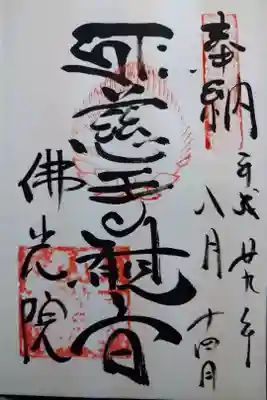 奉納
平成廿九年
八月十四日
慈母観音
佛光院